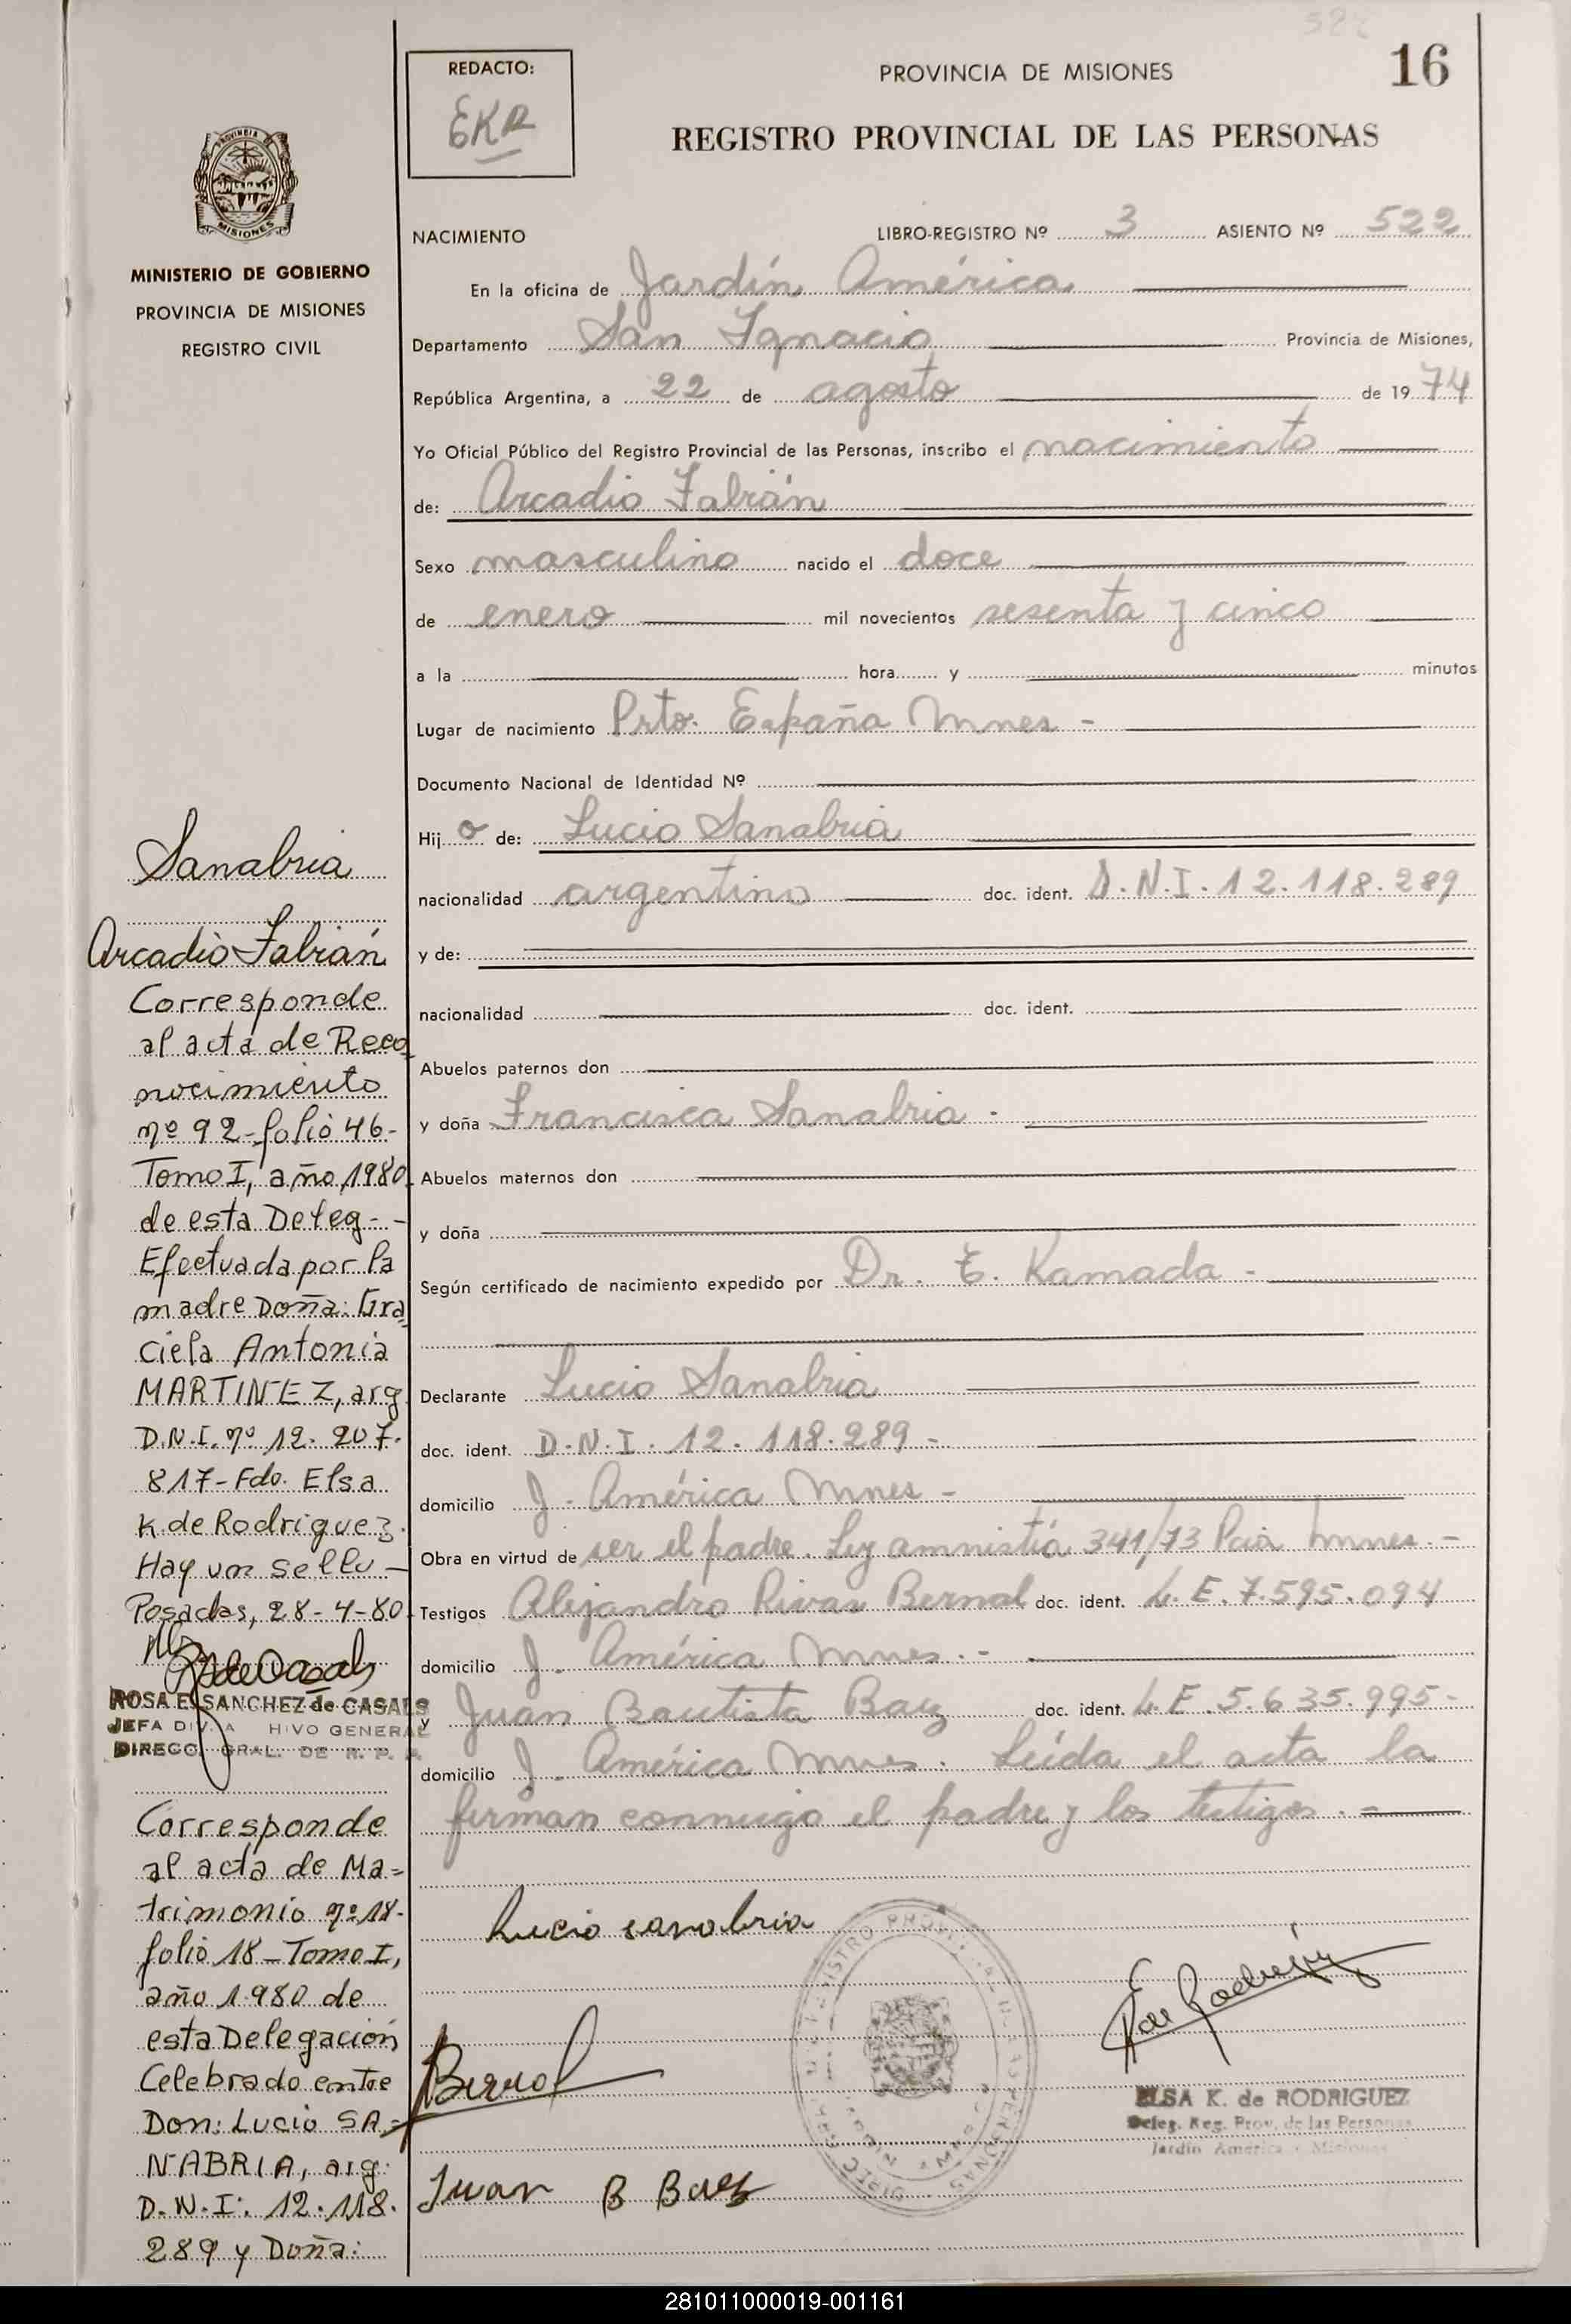 REDACTO:
EKR
PROVINCIA DE MISIONES
16
REGISTRO PROVINCIAL DE LAS PERSONAS
PROVINCIA
MISIONES
MINISTERIO DE GOBIERNO
PROVINCIA DE MISIONES
REGISTRO CIVIL
NACIMIENTO LIBRO-REGISTRO Nº 3 ASIENTO Nº 522
En la oficina de Jardín América
Departamento San Ignacio Provincia de Misiones,
República Argentina, a 22 de agosto de 1974
Yo Oficial Público del Registro Provincial de las Personas, inscribo el nacimiento
de: Arcadio Fabián
Sexo masculino nacido el doce
de enero mil novecientos sesenta y cinco
a la hora y minutos
Lugar de nacimiento Prto. España Mnes -
Documento Nacional de Identidad Nº
Hijo de: Lucio Sanabria
nacionalidad argentino doc. ident. D.N.I. 12.118.289
y de:
nacionalidad doc. ident.
Abuelos paternos don
y doña Francisca Sanabria -
Abuelos maternos don
y doña
Según certificado de nacimiento expedido por Dr. E. Kamada -
Declarante Lucio Sanabria
doc. ident. D.N.I. 12.118.289 -
domicilio J. América Mnes -
Obra en virtud de ser el padre. Ley amnistía 341/73 Pcia Mnes. -
Testigos Alejandro Rivas Bernal doc. ident. L.E. 7.595.094
domicilio J. América Mnes. -
y Juan Bautista Baez doc. ident. L.E. 5.635.995-
domicilio J. América Mnes. Leída el acta la
firman conmigo el padre y los testigos. -
Lucio sanabria
Bernal
Juan B Baez
ELSA K. de RODRIGUEZ
Deleg. Reg. Prov. de las Personas
Jardín América - Misiones
Sanabria
Arcadio Fabián
Corresponde
al acta de Reco
nocimiento
nº 92-folio 46-
Tomo I, año 1980
de esta Deleg- -
Efectuada por la
madre Doña: Gra
ciela Antonia
MARTINEZ, arg
D.N.I. nº 12.207.
817-Fdo. Elsa
K. de Rodriguez.
Hay un sello -
Posadas, 28-4-80
ROSA E. SANCHEZ de CASALS
JEFA DIV. A HIVO GENERAL
DIRECC. GRAL. DE R. P. P.
Corresponde
al acta de Ma-
trimonio nº 18-
folio 18-Tomo I,
año 1.980 de
esta Delegación
Celebrado entre
Don: Lucio SA-
NABRIA, arg.
D.N.I: 12.118.
289 y Doña:
281011000019-001161